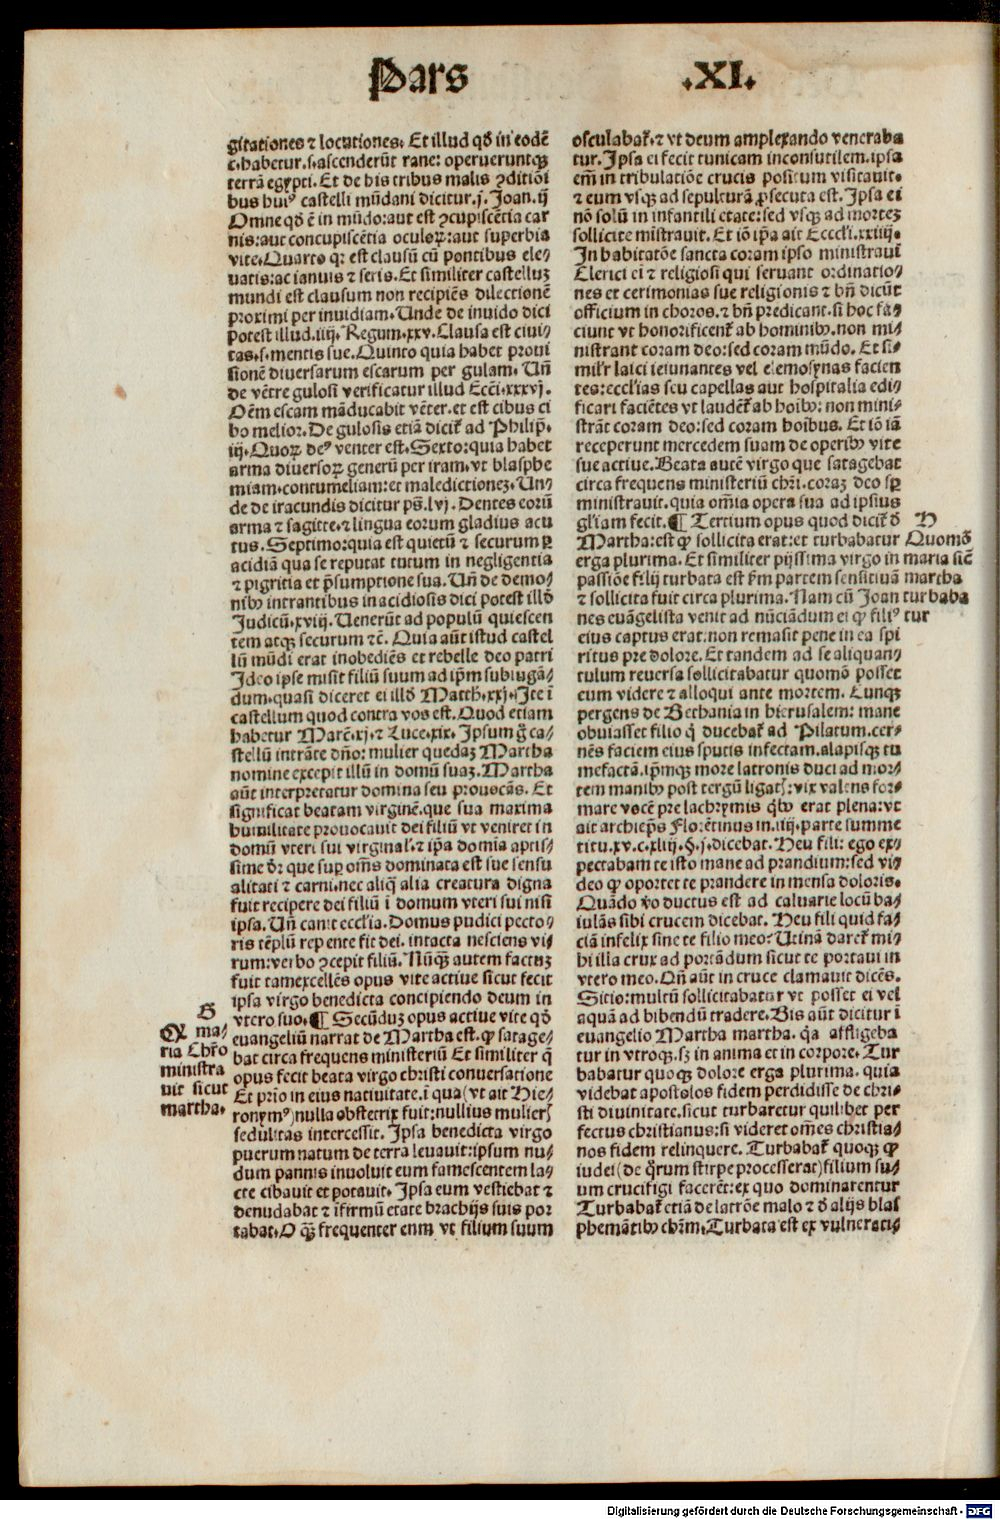 Pars .XI.
gitationes ⁊ locutiones. Et illud qď in eodē
c. habetur. s. ascenderūt rane: operueruntqꝫ
terrā egypti. Et de his tribus malis ꝯditiōi
bus huiꝰ castelli mūdani dicitur. j. Joan. ij
Omne qď ē in mūdo: aut est ꝯcupiscētia car
nis: aut concupiscētia oculoꝝ: aut superbia
vite. Quarto qꝛ est clausū cū pontibus ele⸗
uatis: ac ianuis ⁊ seris. Et similiter castelluꝫ
mundi est clausum non recipiēs dilectionē
proximi per inuidiam. Unde de inuido dici
potest illud. iiij. Regum. xxv. Clausa est ciui⸗
tas. s. mentis sue. Quinto quia habet proui
sionē diuersarum escarum per gulam. Uñ
de vētre gulosi verificatur illud Ecci. xxxvj.
Oēm escam māducabit vēter. et est cibus ci
bo melior. De gulosis etiā dicit̄ ad Philip̄.
iij. Quoꝝ deꝰ venter est. Sexto: quia habet
arma diuersoꝝ generū per iram. vt blasphe
miam. contumeliam: et maledictioneꝫ. Un⸗
de de iracundis dicitur ps̄. lvj. Dentes eorū
arma ⁊ sagitte. ⁊ lingua eorum gladius acu
tus. Septimo: quia est quietū ⁊ securum ꝑ
acidiā qua se reputat tutum in negligentia
⁊ pigritia et p̄sumptione sua. Uñ de demo⸗
nibꝰ intrantibus in acidiosis dici potest illď
Judicū. xviij. Uenerūt ad populū quiescen
tem atqꝫ securum ⁊c̄. Quia aūt istud castel
lū mūdi erat inobediēs et rebelle deo patri
Ideo ipse misit filiū suum ad ip̄m subiugā⸗
dum. quasi diceret ei illď Matth. xxj. Ite ī
castellum quod contra vos est. Quod etiam
habetur Marc. xj. ⁊ Luce. xix. Ipsum g̊ ca⸗
stellū intrāte dño: mulier quedaꝫ Martha
nomine excepit illū in domū suaꝫ. Martha
aūt interpretatur domina seu prouocās. Et
significat beatam virginē. que sua maxima
humilitate prouocauit dei filiū vt veniret in
domū vteri sui virginal̓. ⁊ ip̄a domia aptis⸗
sime dr̄ que suꝑ om̄s dominata est sue sensu
alitati ⁊ carni. nec aliq̄ alia creatura digna
fuit recipere dei filiū ī domum vteri sui nisi
ipsa. Uñ canit eccl̓ia. Domus pudici pecto⸗
ris tēplū repente fit dei. intacta nesciens vi⸗
rum: verbo ꝯcepit filiū. Nūqꝫ autem factuꝫ
fuit tamexcellēs opus vite actiue sicut fecit
ipsa virgo benedicta concipiendo deum in
vtero suo. ¶ Secūduꝫ opus actiue vite qď
euangeliū narrat de Martha est. ꝙ satage⸗
bat circa frequens ministeriū Et similiter q̄
opus fecit beata virgo christi conuersatione
Et prio in eius natiuitate. ī qua (vt ait Hie⸗
ronymꝰ) nulla obstetrix fuit: nullius mulierꝭ
sedulitas intercessit. Ipsa benedicta virgo
puerum natum de terra leuauit: ipsum nu⸗
dum pannis inuoluit eum famescentem la⸗
cte cibauit et potauit. Ipsa eum vestiebat ⁊
denudabat ⁊ īfirmū etate brachijs suis por
tabat. O qꝫ frequenter eum vt filium suum
G
Qꝫ ma⸗
ria Chr̄o
ministra
uit sicut
martha.
osculabat̄. ⁊ vt deum amplexando veneraba
tur. Ipsa ei fecit tunicam inconsutilem. ipsa
em̄ in tribulatiōe crucis positum visitauit.
⁊ eum vsqꝫ ad sepulturā ꝓsecuta est. Ipsa ei
nō solū in infantili etate: sed vsqꝫ ad morteꝫ
sollicite mīstrauit. Et iō ip̄a ait Eccl̓i. xxiiij.
In habitatōe sancta coram ipso ministraui
Clerici ei ⁊ religiosi qui seruant ordinatio⸗
nes et cerimonias sue religionis ⁊ bñ dicūt
officium in choros. ⁊ bñ predicant. si hoc fa⸗
ciunt vt honorificent̄ ab hominibꝰ. non mi⸗
nistrant coram deo: sed coram mūdo. Et si⸗
mil̓r laici ieiunantes vel elemosynas facien
tes: eccl̓ias seu capellas aut hospitalia edi⸗
ficari faciētes vt laudēt̄ ab hoibꝰ: non mini⸗
strāt coram deo: sed coram hoibus. Et iō iā
receperunt mercedem suam de operibꝰ vite
sue actiue. Beata autē virgo que satagebat
circa frequens ministeriū chr̄i. coraꝫ deo sꝑ
ministrauit. quia om̄ia opera sua ad ipsius
gl̓iam fecit. ¶ Tertium opus quod dicit̄ ď
Martha: est ꝙ sollicita erat: et turbabatur
erga plurima. Et similiter pijssima virgo in
passiōe filij turbata est ẜm partem sensitiuā
⁊ sollicita fuit circa plurima. Nam cū Joan
nes euāgelista venit ad nūciādum ei ꝙ filiꝰ
eius captus erat: non remasit pene in ea spi
ritus pre dolore. Et tandem ad se aliquan⸗
tulum reuersa sollicitabatur quomō posset
eum videre ⁊ alloqui ante mortem. Cunqꝫ
pergens de Bethania in hierusalem: mane
obuiasset filio q̇ ducebat̄ ad Pilatum. cer⸗
nēs faciem eius sputis infectam. alapisqꝫ tu
mefactā. ip̄mqꝫ more latronis duci ad mor⸗
tem manibꝰ post tergū ligatꝭ: vix valens for⸗
mare vocē pre lachrymis q̇bꝰ erat plena: vt
ait archiep̄s Florētinus in. iiij. parte summe
titu. xv. c. xliij. §. j. dicebat. Heu fili: ego ex⸗
pectabam te isto mane ad prandium: sed vi⸗
deo ꝙ oportet te prandere in mensa doloris.
Quādo v̊o ductus est ad caluarie locū ba⸗
iulās sibi crucem dicebat. Heu fili quid fa⸗
ciā infelix sine te filio meo? Utinā daret̄ mi⸗
hi illa crux ad portādum sicut te portaui in
vtero meo. Qñ aūt in cruce clamauit dicēs.
Sitio: multū sollicitabatur vt posset ei vel
aquā ad bibendū tradere. Bis aūt dicitur ī
euangelio Martha martha. q̇a affligeba
tur in vtroqꝫ. sꝫ in anima et in corpore. Tur
babatur quoqꝫ dolore erga plurima. quia
videbat apostolos fidem perdidisse de chri⸗
sti diuinitate. sicut turbaretur quilibet per
fectus christianus: si videret om̄es christia⸗
nos fidem relinquere. Turbabat̄ quoqꝫ ꝙ
iudei (de q̊rum stirpe processerat) filium su⸗
um crucifigi facerēt: ex quo dominarentur
Turbabat̄ etiā de latrōe malo ⁊ ď alijs blas
phemātibꝰ chr̄m. Turbata est ex vulnerati⸗
H
Quomō
maria sic̄
martha
turbaba
tur
Digitalisierung gefördert durch die Deutsche Forschungsgemeinschaft - DFG